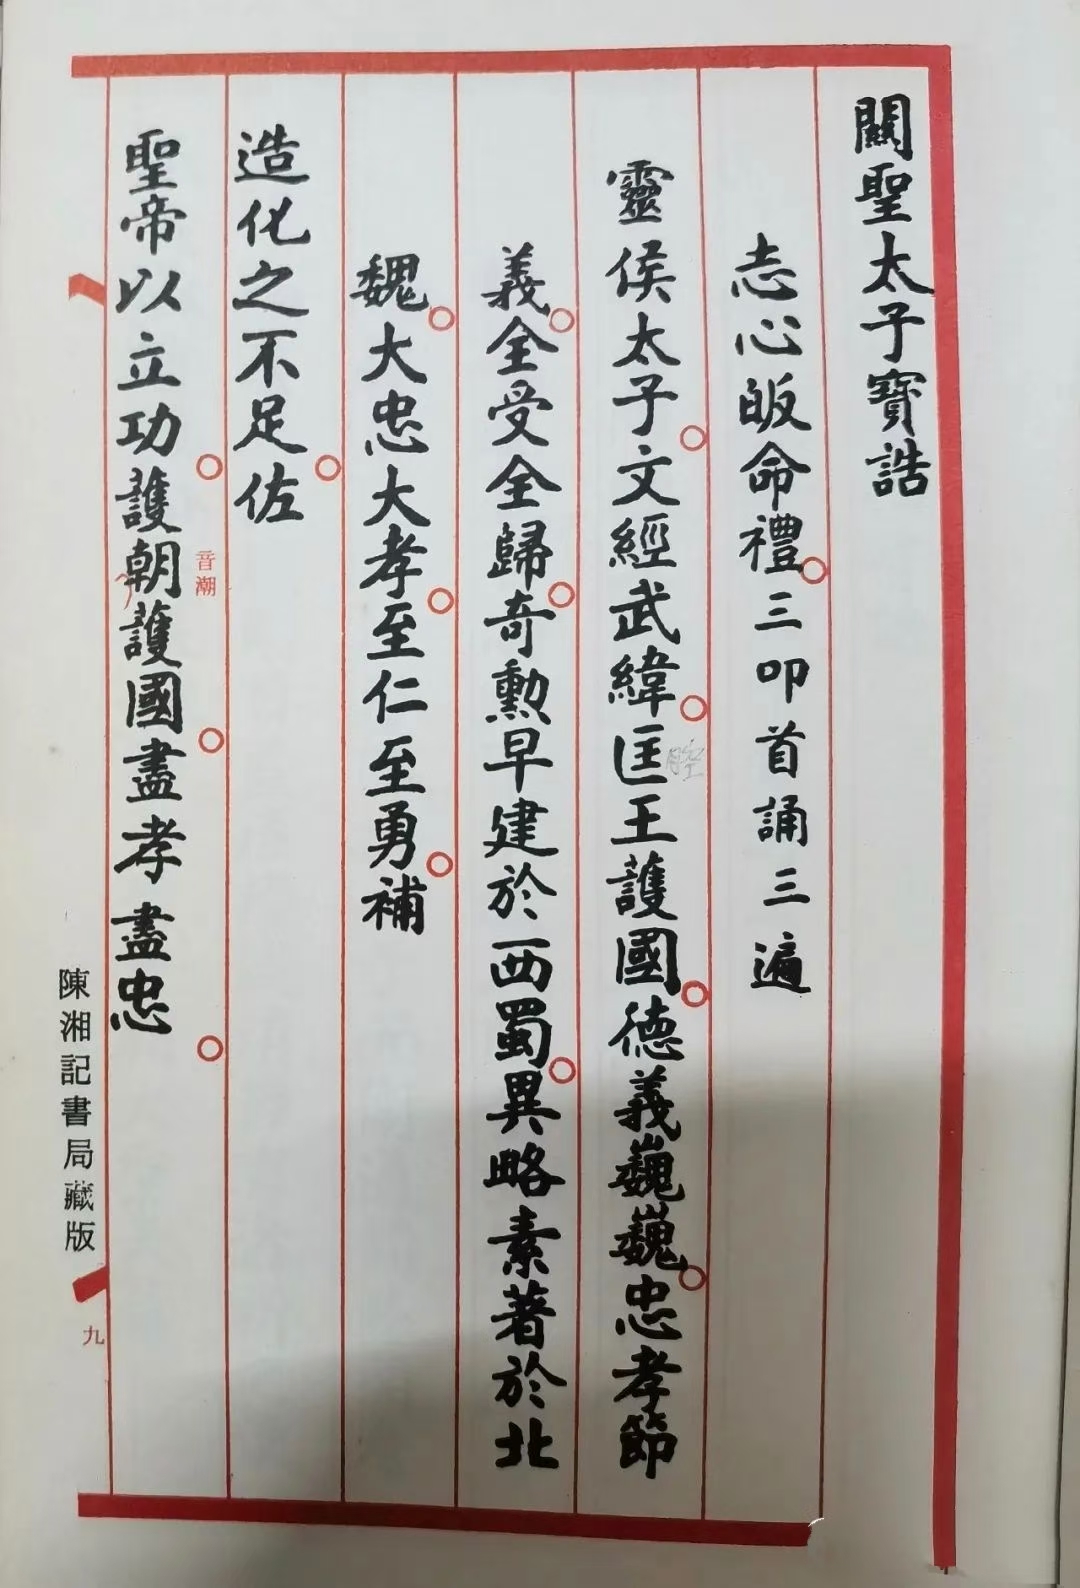 關聖太子寶誥
志心皈命禮三叩首誦三遍
靈侯太子文經武緯匡王護國德義巍巍忠孝節
腔
義全受全歸奇勳早建於西蜀異略素著於北
魏大忠大孝至仁至勇補
造化之不足佐
聖帝以立功護朝護國盡孝盡忠
音潮
陳湘記書局藏版
九